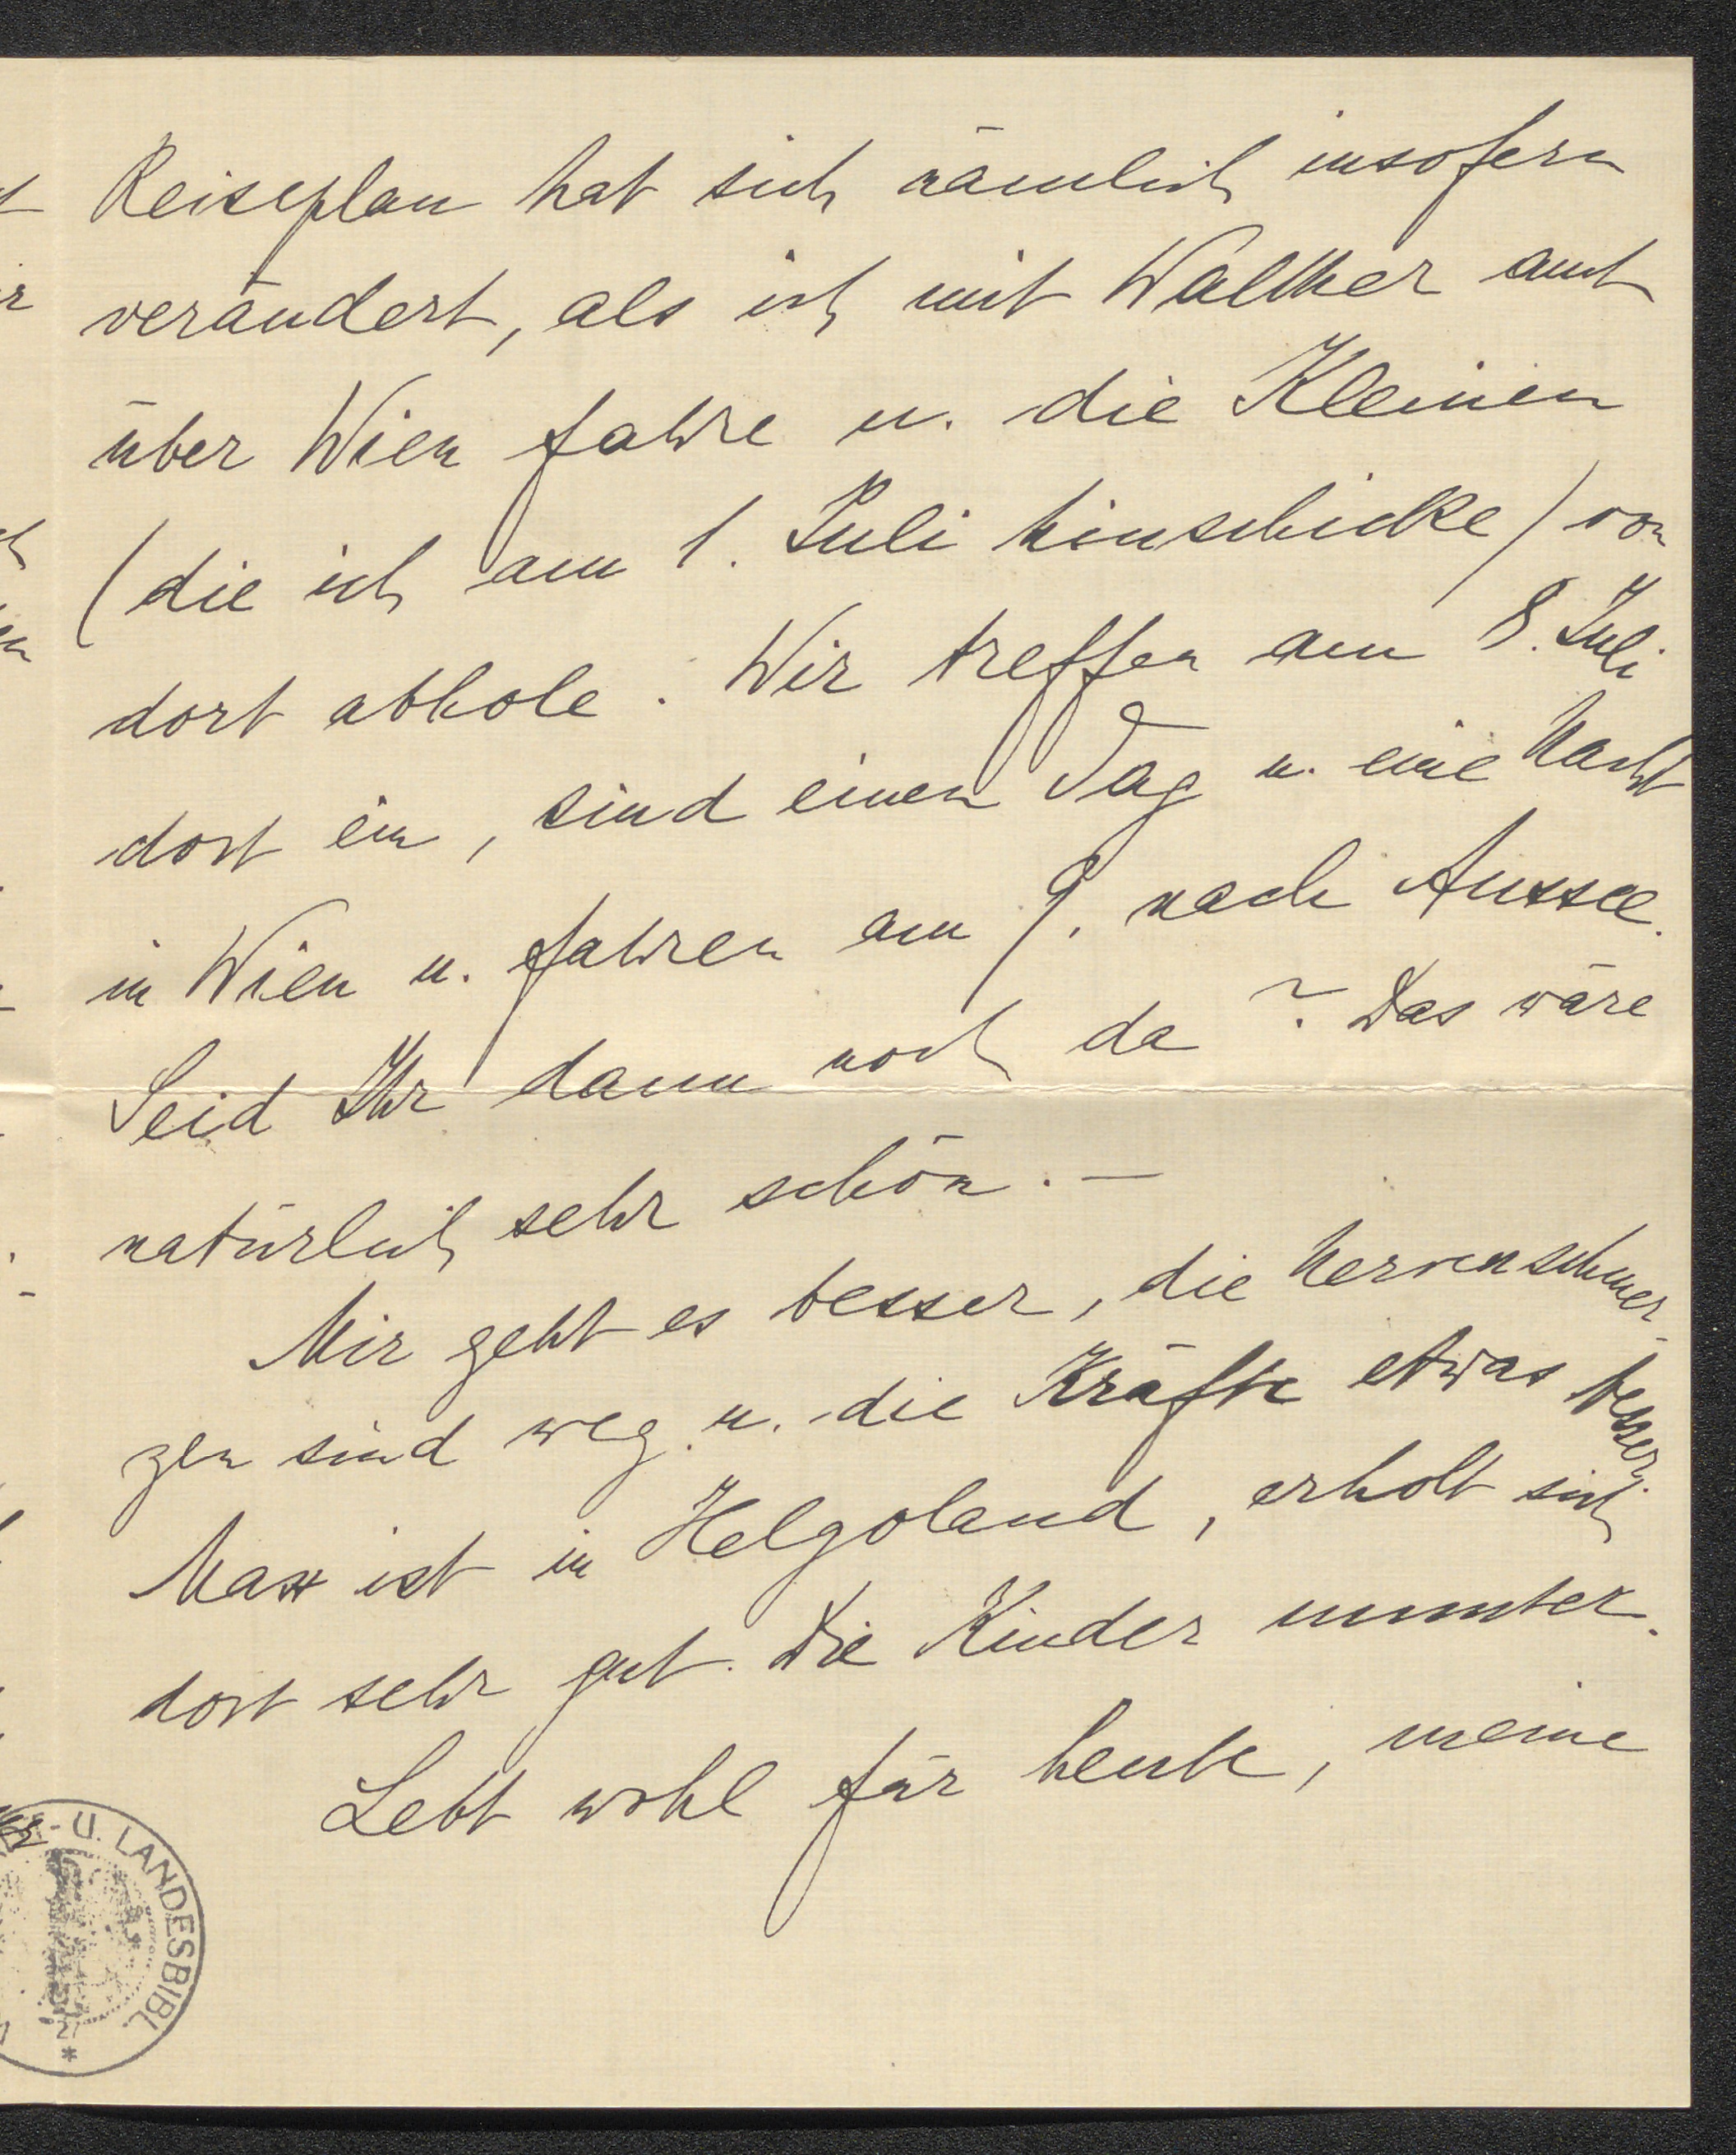 Reiseplan hat sich nämlich insofern
verändert, als ich mit Walther auch
über Wien fahre u. die Kleinen
(die ich am 1. Juli hinschicke) von
dort abhole. Wir treffen am 8. Juli
dort ein, sind einen Tag u. eine Nacht
in Wien u. fahren am 9. nach Aussee.
Seid Ihr dann noch da? Das wäre
natürlich sehr schön. —
Mir geht es besser, die Nervenschmer-
zen sind weg u. die Kräfte etwas besser.
Max ist in Helgoland, erholt sich
dort sehr gut. Die Kinder munter.
Lebt wohl für heute, meine
- U. LANDESBIBL.
*